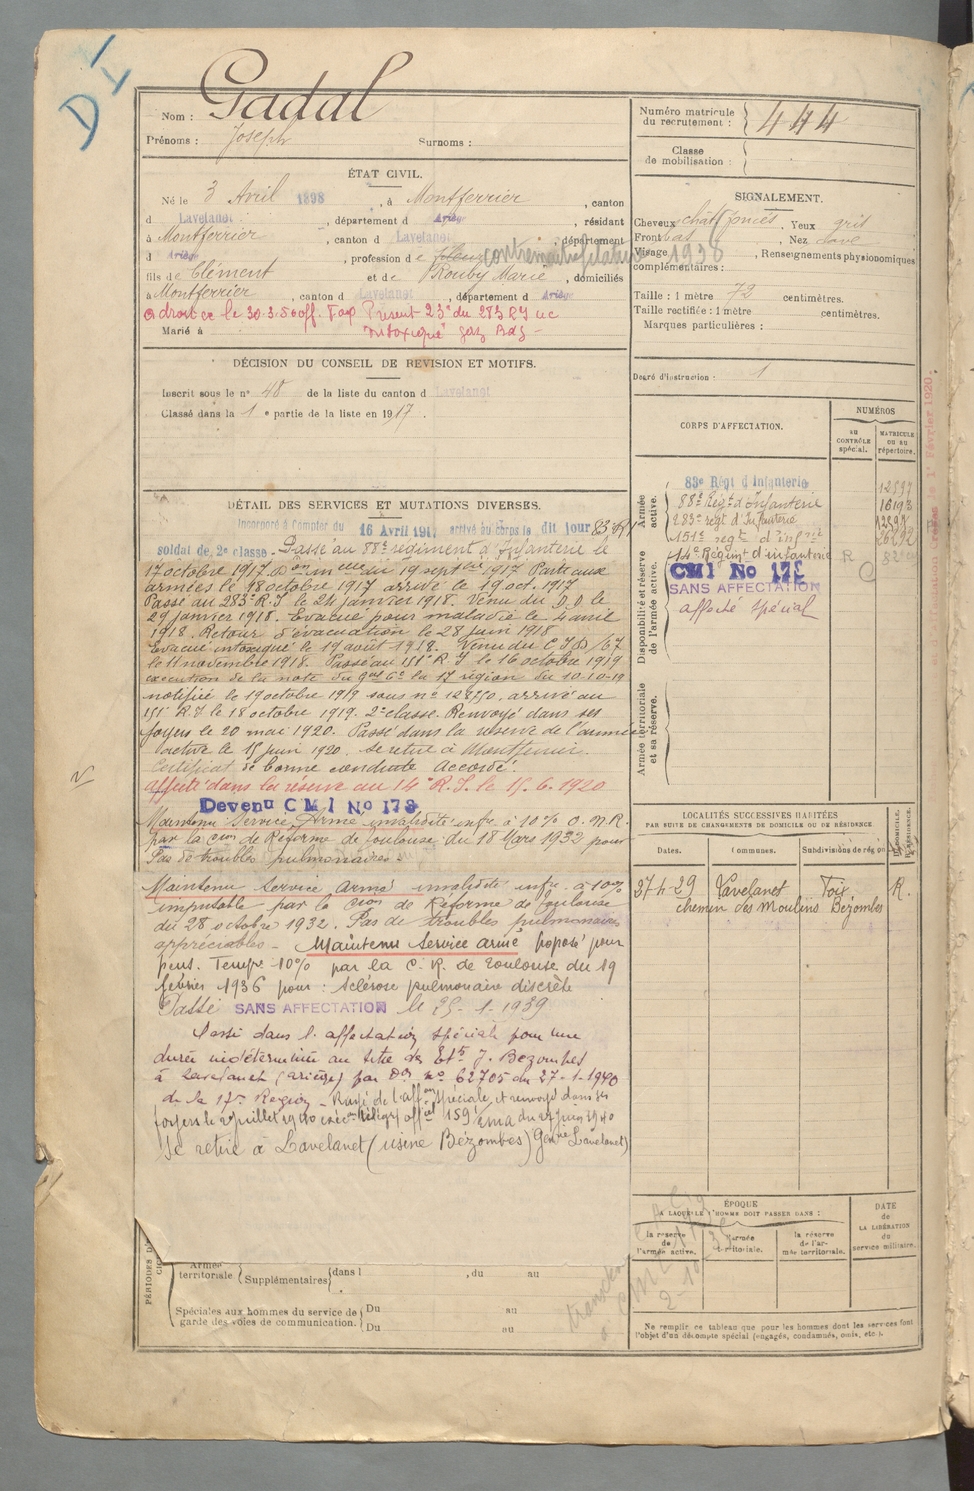 Nom : Gadal
Prénoms : Joseph Surnoms :
Numéro matricule du recrutement : 444
Classe de mobilisation :
ÉTAT CIVIL.
Né le 3 Avril 1898, à Montferrier, canton
d Lavelanet, département d Ariège, résidant
à Montferrier, canton d Lavelanet, département
d Ariège, profession de
fils de Clément et de Rouby Marie, domiciliés
à Montferrier, canton d Lavelanet, département d Ariège
a droit le 30.3.50 off. du 283 RI
intoxiqué gaz
Marié à
SIGNALEMENT.
Cheveux chât foncés. Yeux gris
Front bas Nez cave
Visage 1938, Renseignements physionomiques
complémentaires :
Taille : 1 mètre 72 centimètres.
Taille rectifiée : 1 mètre centimètres.
Marques particulières :
Degré d'instruction : 1
DÉCISION DU CONSEIL DE RÉVISION ET MOTIFS.
Inscrit sous le n° 48 de la liste du canton d Lavelanet
Classé dans la 1e partie de la liste en 1917.
CORPS D'AFFECTATION.
NUMÉROS
au CONTRÔLE spécial.
MATRICULE ou au répertoire.
Armée active.
83e Régt d'Infanterie
88e Régt d'Infanterie
283e régt d'Infanterie
151e regt d'infrie
Disponibilité et réserve de l'armée active.
14e Régiment d'infanterie R
CMI No 173
SANS AFFECTATION
affecté spécial
Armée territoriale et sa réserve.
DÉTAIL DES SERVICES ET MUTATIONS DIVERSES.
Incorporé à compter du 16 Avril 1917 arrivé au corps le dit jour
soldat de 2e classe. Passé au 88e regiment d'Infanterie le
17 octobre 1917. Don melle du 19 septbre 1917 Parti aux
armées le 18 octobre 1917 arrivé le 19 oct. 1917
Passé au 283e R.I le 24 janvier 1918. Venu du D.D le
29 janvier 1918. Evacué pour maladie le 4 avril
1918. Retour d'évacuation le 28 juin 1918
Evacué intoxiqué le 19 août 1918. Venu du C.I.D/67
le 11 novembre 1918. Passé au 151e R I le 16 octobre 1919
exécution de la note du Gral Ct la 17 région du 10-10-19
notifié le 19 octobre 1919 sous n° arrivé au
151e R.I le 18 octobre 1919. 2e classe. Renvoyé dans ses
foyers le 20 mai 1920. Passé dans la réserve de l'armée
active le 15 juin 1920. Se retire à Montferrier.
Certificat de bonne conduite Accordé.
Affecté dans la réserve au 14e R.I. le 15.6.1920
Devenu CMI No 173
Maintenu Service Armé invalidité infre à 10% O.N.R.
par la Cion de Réforme de Toulouse du 18 Mars 1932 pour
Pas de troubles pulmonaires.
Maintenu Service armé invalidité infre à 10%
imputable par la Cion de Réforme de Toulouse
du 28 octobre 1932. Pas de troubles pulmonaires
appréciables - Maintenu Service armé Proposé pour
pens. Tempre 10% par la C.R. de Toulouse du 19
février 1936 pour : sclérose pulmonaire discrète
Passé SANS AFFECTATION le 25-1-1939
Passé dans l'affectation spéciale pour une
durée indéterminée au titre des Ets J. Bezombes
à Lavelanet (ariège) par Don n° 62705 du 27-1-1940
de la 17e Region - Rayé de l'affon spéciale et renvoyé dans ses
foyers le 2 juillet 1940 159 EMA du 25 juin 1940
Se retire à Lavelanet (usine Bézombes) Genrie Lavelanet)
LOCALITÉS SUCCESSIVES HABITÉES
PAR SUITE DE CHANGEMENTS DE DOMICILE OU DE RÉSIDENCE
Dates. Communes. Subdivisions de région. D. DOMICILE. R. RÉSIDENCE.
27-4-29 Lavelanet Foix R.
chemin des Moulins Bézombes
ÉPOQUE
A LAQUELLE L'HOMME DOIT PASSER DANS :
la réserve de l'armée active.
l'armée territoriale.
la réserve de l'armée territoriale.
DATE de LA LIBÉRATION du service militaire.
Armée territoriale
Supplémentaires dans l , du au
Spéciales aux hommes du service de garde des voies de communication.
Du au
Du au
Ne remplir ce tableau que pour les hommes dont les services font
l'objet d'un décompte spécial (engagés, condamnés, omis, etc.).